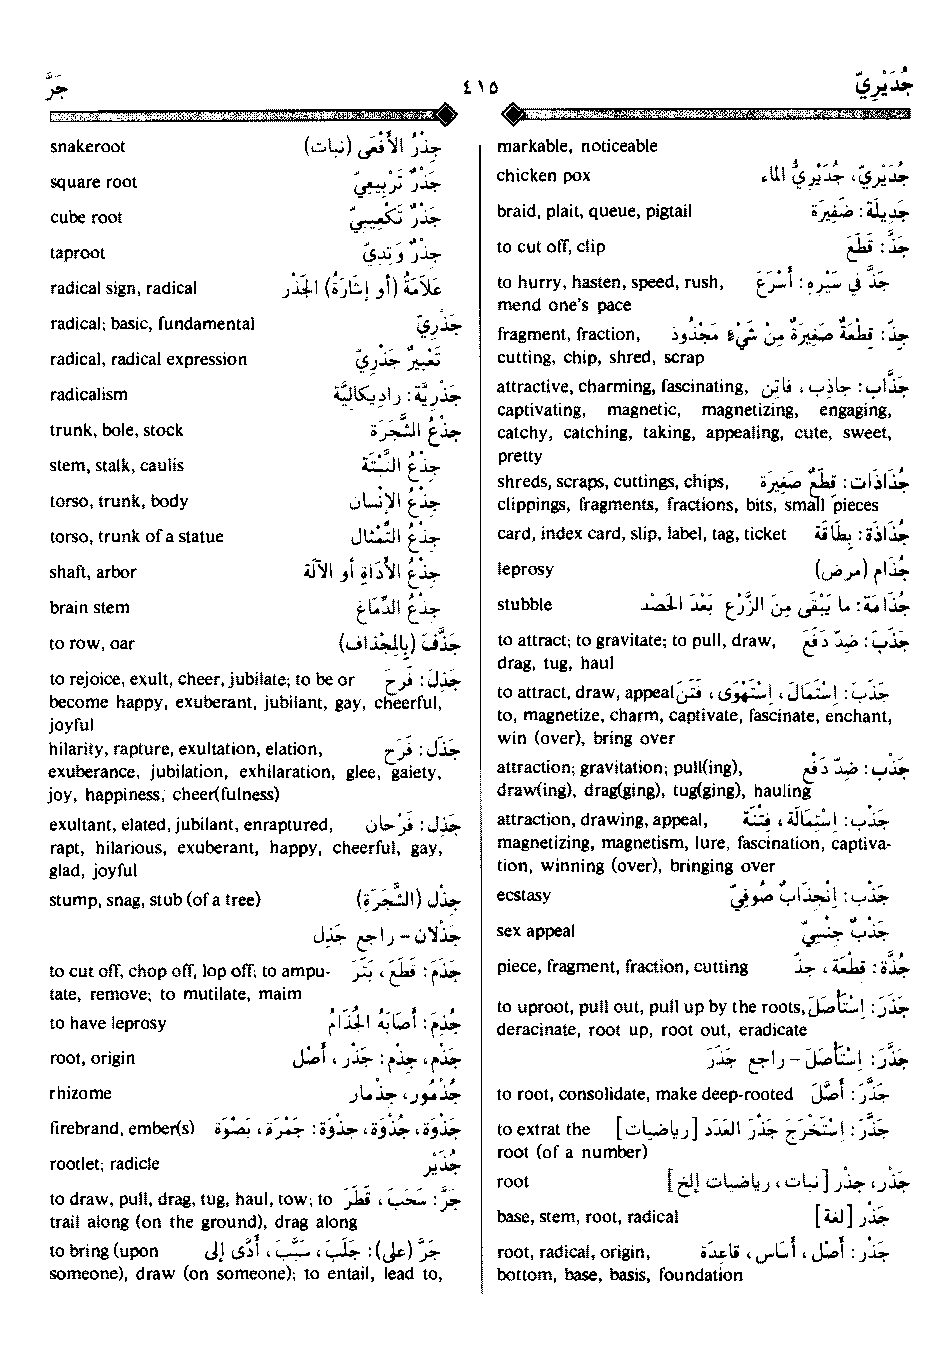 جُدَيْرِيّ
٤١٥
جَرَّ
markable, noticeable
جُدَيْرِيّ، جُدَيْرِيُّ الماء chicken pox
جَدِيلَة: ضَفِيرَة braid, plait, queue, pigtail
جَذَّ: قَطَعَ to cut off, clip
جَذَّ في سَيْرِهِ: أَسْرَعَ to hurry, hasten, speed, rush,
mend one's pace
جذّ: قِطْعَةٌ صَغِيرَةٌ مِنْ شَيْءٍ مَجْذُوذ fragment, fraction,
cutting, chip, shred, scrap
جَذَّاب: جاذِب، فاتِن attractive, charming, fascinating,
captivating, magnetic, magnetizing, engaging,
catchy, catching, taking, appealing, cute, sweet,
pretty
جُذَاذَات: قِطَعٌ صَغِيرَة shreds, scraps, cuttings, chips,
clippings, fragments, fractions, bits, small pieces
جُذَاذَة: بِطَاقَة card, index card, slip, label, tag, ticket
جُذَام (مرض) leprosy
جُذَامَة: ما يَبْقَى مِنَ الزَّرْعِ بَعْدَ الحَصْد stubble
جَذَبَ: ضِدّ دَفَعَ to attract; to gravitate; to pull, draw,
drag, tug, haul
جَذَبَ: إِسْتَمَالَ، إِسْتَهْوَى، فَتَنَ to attract, draw, appeal
to, magnetize, charm, captivate, fascinate, enchant,
win (over), bring over
جَذْب: ضِدّ دَفْع attraction; gravitation; pull(ing),
draw(ing), drag(ging), tug(ging), hauling
جَذْب: إِسْتِمَالَة، فِتْنَة attraction, drawing, appeal,
magnetizing, magnetism, lure, fascination, captiva-
tion, winning (over), bringing over
جَذْب: إِنْجِذَابٌ صُوفِيّ ecstasy
جَذْبٌ جِنْسِيّ sex appeal
جُذَّة: قِطْعَة، جذّ piece, fragment, fraction, cutting
جَذَرَ: إِسْتَأْصَلَ to uproot, pull out, pull up by the roots,
deracinate, root up, root out, eradicate
جَذَّرَ: إِسْتَأْصَلَ – راجع جَذَرَ
جَذَّرَ: أَصَّلَ to root, consolidate, make deep-rooted
جَذَّرَ: إِسْتَخْرَجَ جَذْرَ العَدَد [رياضيات] to extrat the
root (of a number)
جَذْر، جِذْر [نبات، رياضيات إلخ] root
جَذْر [لغة] base, stem, root, radical
جَذْر: أَصْل، أَسَاس، قاعِدَة root, radical, origin,
bottom, base, basis, foundation
جَذْرُ الأَفْعَى (نبات) snakeroot
جَذْرٌ تَرْبِيعِيّ square root
جَذْرٌ تَكْعِيبِيّ cube root
جَذْرٌ وَتِدِيّ taproot
عَلَامَةُ (أو إِشَارَةُ) الجَذْر radical sign, radical
جَذْرِيّ radical; basic, fundamental
تَعْبِيرٌ جَذْرِيّ radical, radical expression
جَذْرِيَّة: رادِيكالِيَّة radicalism
جِذْعُ الشَّجَرَة trunk, bole, stock
جِذْعُ النَّبْتَة stem, stalk, caulis
جِذْعُ الإِنْسان torso, trunk, body
جِذْعُ التِّمْثَال torso, trunk of a statue
جِذْعُ الأَدَاةِ أو الآلَة shaft, arbor
جِذْعُ الدِّمَاغ brain stem
جَذَّفَ (بِالمِجْذاف) to row, oar
جَذِلَ: فَرِحَ to rejoice, exult, cheer, jubilate; to be or
become happy, exuberant, jubilant, gay, cheerful,
joyful
جَذَل: فَرَح hilarity, rapture, exultation, elation,
exuberance, jubilation, exhilaration, glee, gaiety,
joy, happiness, cheer(fulness)
جَذِل: فَرْحَان exultant, elated, jubilant, enraptured,
rapt, hilarious, exuberant, happy, cheerful, gay,
glad, joyful
جِذْل (الشَّجَرَة) stump, snag, stub (of a tree)
جَذْلان – راجع جَذِل
جَذَمَ: قَطَعَ، بَتَرَ to cut off, chop off, lop off; to ampu-
tate, remove; to mutilate, maim
جُذِمَ: أَصَابَهُ الجُذَامُ to have leprosy
جِذْم، جَذْم: جَذْر، أَصْل root, origin
جُذْمُور، جِذْمَار rhizome
جَذْوَة، جِذْوَة، جُذْوَة: جَمْرَة، بَصْوَة firebrand, ember(s)
جُذَيْر rootlet; radicle
جَرَّ: سَحَبَ، قَطَرَ to draw, pull, drag, tug, haul, tow; to
trail along (on the ground), drag along
جَرَّ (على): جَلَبَ، سَبَّبَ، أَدَّى إلى to bring (upon
someone), draw (on someone); to entail, lead to,